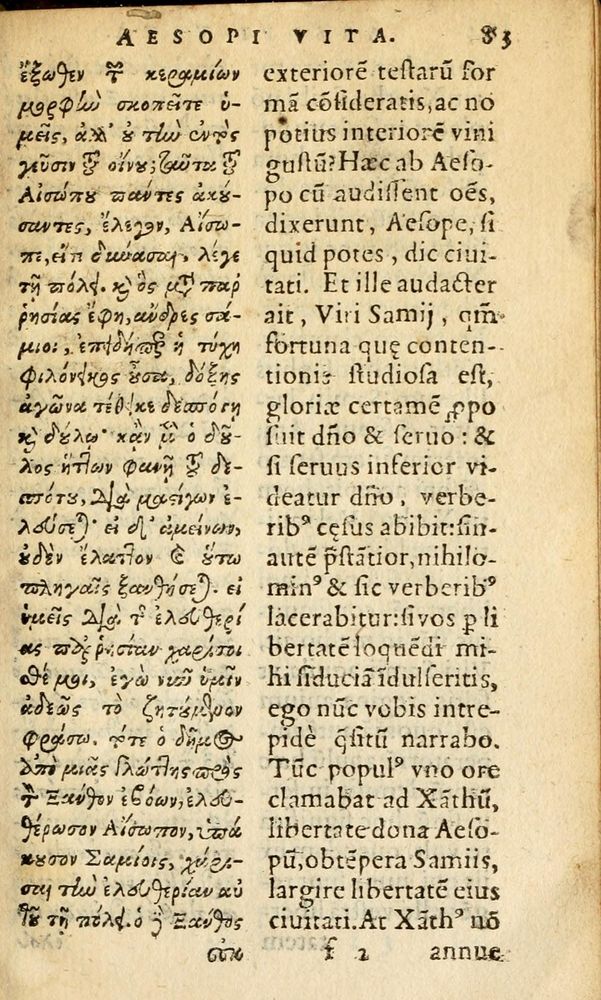 AESOPI VITA. 83
ἔξωθεν τῶν κεραμίων
μορφὴν σκοπεῖτε ὑ-
μεῖς, ἀλλ' οὐ τὴν ἐντὸς
γεῦσιν τοῦ οἴνου; ταῦτα τοῦ
Αἰσώπου πάντες ἀκού-
σαντες, ἔλεγον, Αἴσω-
πε, εἴ τι δύνασαι, λέγε
τῇ πόλει. καὶ ὃς μετὰ παρ
ρησίας ἔφη, ἄνδρες σά-
μιοι, ἐπειδήπερ ἡ τύχη
φιλόνεικος οὖσα, δόξης
ἀγῶνα τέθεικε δεσπότῃ
καὶ δούλῳ· κἂν μὲν ὁ δοῦ-
λος ἥττων φανῇ τοῦ δε-
σπότου, διὰ μαστίγων ἐ-
λεύσεται· εἰ δ' ἀμείνων,
οὐδὲν ἔλαττον καὶ οὕτω
πληγαῖς ξανθήσεται. εἰ
ὑμεῖς διὰ τῆς ἐλευθερί
ας παρρησίαν χαρίσοι
σθέ μοι, ἐγὼ νῦν ὑμῖν
ἀδεῶς τὸ ζητούμενον
φράσω. τότε ὁ δῆμος
ἀπὸ μιᾶς γλώττης πρὸς
τὸν Ξάνθον ἐβόων, ἐλευ-
θέρωσον Αἴσωπον, ὑπά
κουσον Σαμίοις, χάρι-
σαι τὴν ἐλευθερίαν αὐ
τοῦ τῇ πόλει. ὁ δὲ Ξάνθος
οὐκ
exteriorē testarū for
mā cōsideratis, ac nō
potius interiorē vini
gustū? Hæc ab Aeso-
po cū audissent oēs,
dixerunt, Aesope, si
quid potes, dic ciui-
tati. Et ille audacter
ait, Viri Samij, qm̄
fortuna quę conten-
tionis studiosa est,
gloriæ certamē ꝓpo
suit dn̄o & seruo: &
si seruus inferior vi-
deatur dn̄o, verbe-
ribꝰ cęsus abibit: sin
autē p̄stātior, nihilo-
minꝰ & sic verberibꝰ
lacerabitur: si vos ꝑ li
bertatē loquēdi mi-
hi fiduciā īdulseritis,
ego nūc vobis intre-
pidè q̄situ̅ narrabo.
Tūc populꝰ vno ore
clamabat ad Xāthū,
libertate dona Aeso-
pū, obtēpera Samiis,
largire libertatē eius
ciuitati. At Xāthꝰ nō
f 2 annue